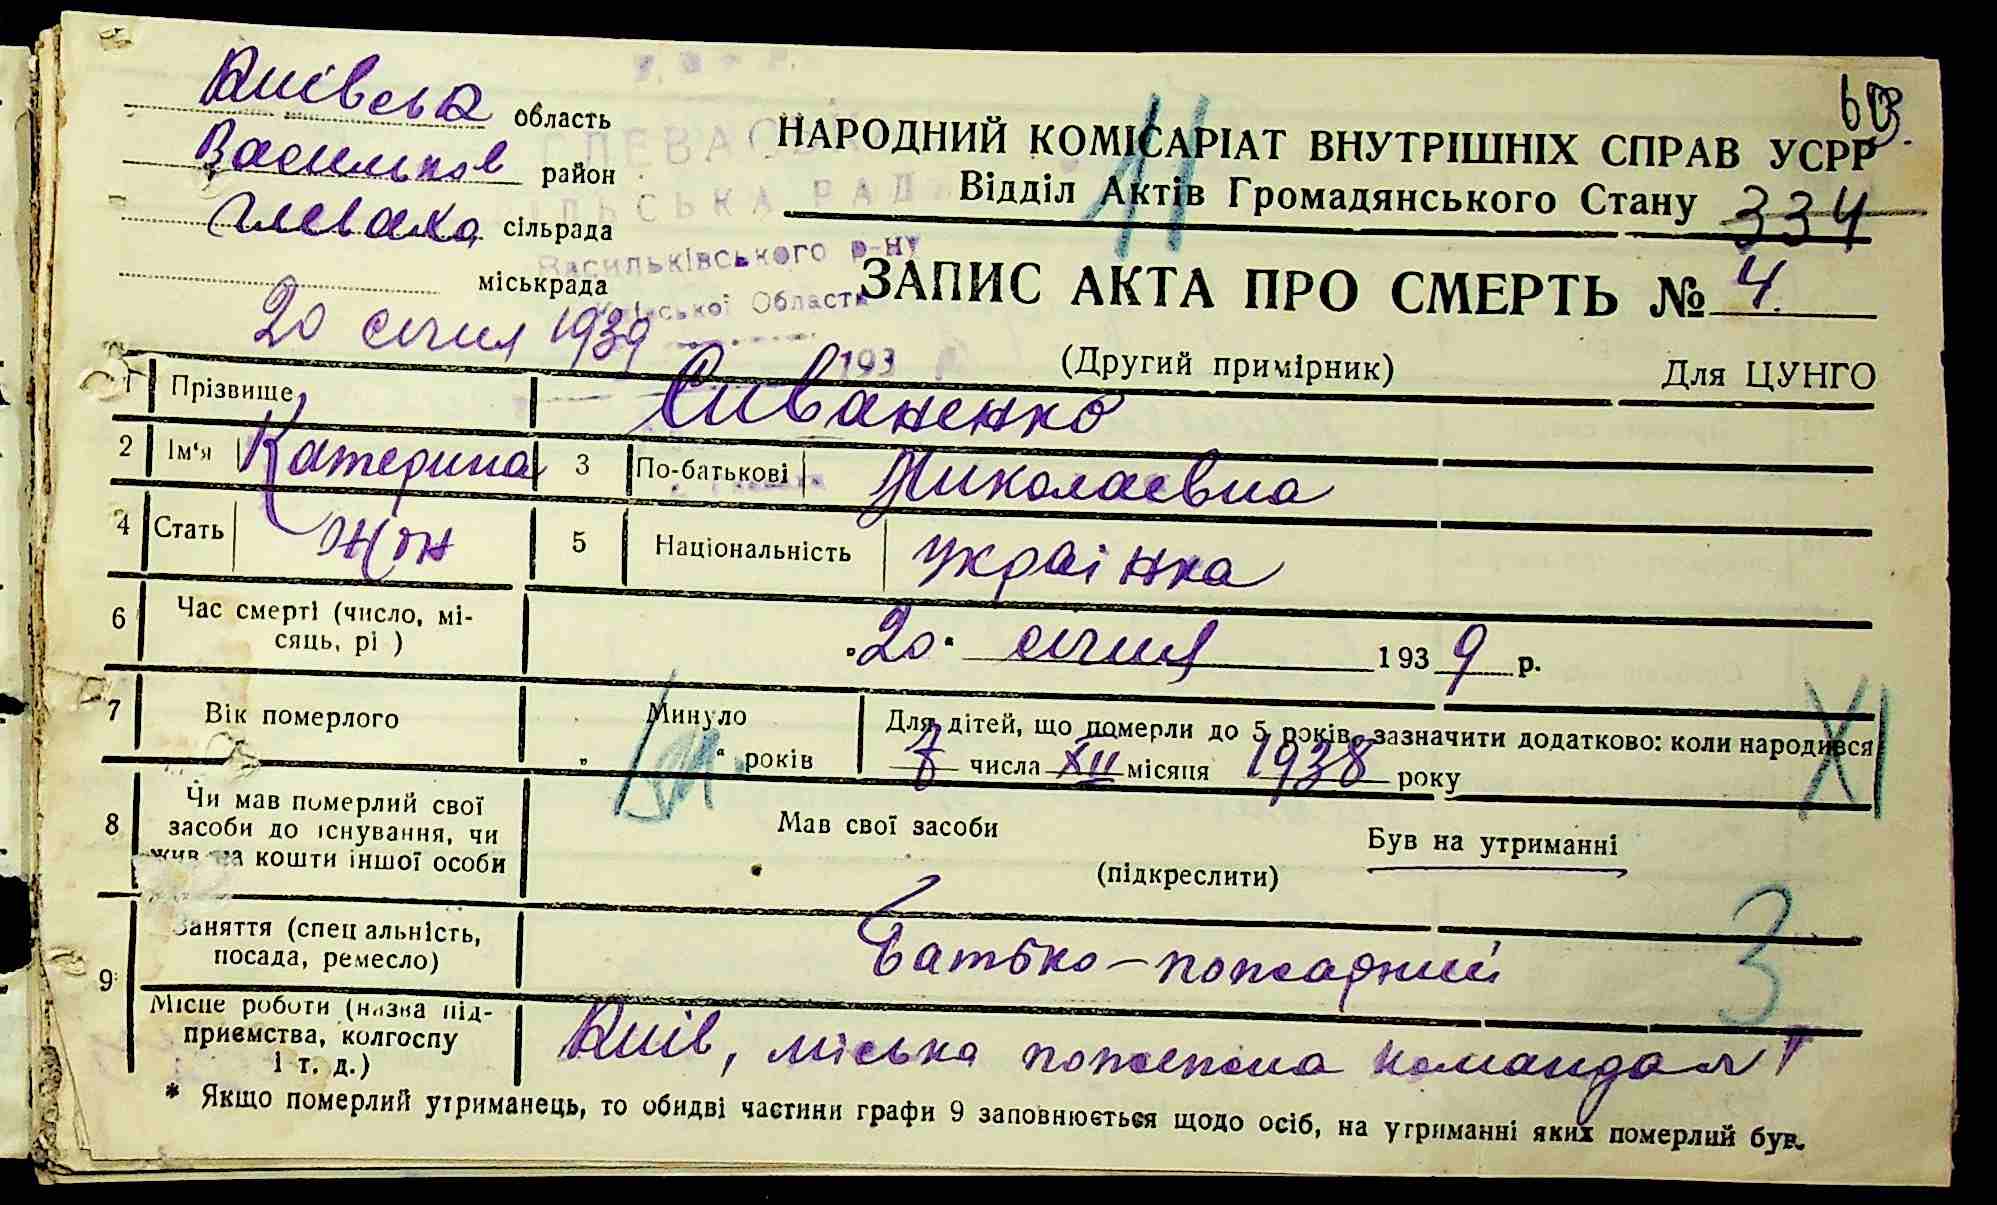 Київська область
Васильков район
Глеваха сільрада
міськрада
ГЛЕВАСЬКА
СІЛЬСЬКА РАДА
Васильківського р-ну
Київської Області
193
20 січня 1939
НАРОДНИЙ КОМІСАРІАТ ВНУТРІШНІХ СПРАВ УСРР
Відділ Актів Громадянського Стану 334
11
ЗАПИС АКТА ПРО СМЕРТЬ № 4
(Другий примірник) Для ЦУНГО
1 Прізвище Сиваненко
2 Ім'я Катерина 3 По-батькові Миколаєвна
4 Стать жін 5 Національність українка
6 Час смерті (число, мі-
сяць, рі ) 20 січня 1939 р.
7 Вік померлого Минуло
„ “ років
Для дітей, що померли до 5 років, зазначити додатково: коли народився
7 числа XII місяця 1938 року
XI
8 Чи мав померлий свої
засоби до існування, чи
жив на кошти іншої особи
Мав свої засоби Був на утриманні
(підкреслити)
9 Заняття (спец альність,
посада, ремесло) Батько – пожарний
3
Місце роботи (назва під-
приємства, колгоспу
і т. д.) Київ, міська пожарна команда
* Якщо померлий утриманець, то обидві частини графи 9 заповнюється щодо осіб, на утриманні яких померлий був.